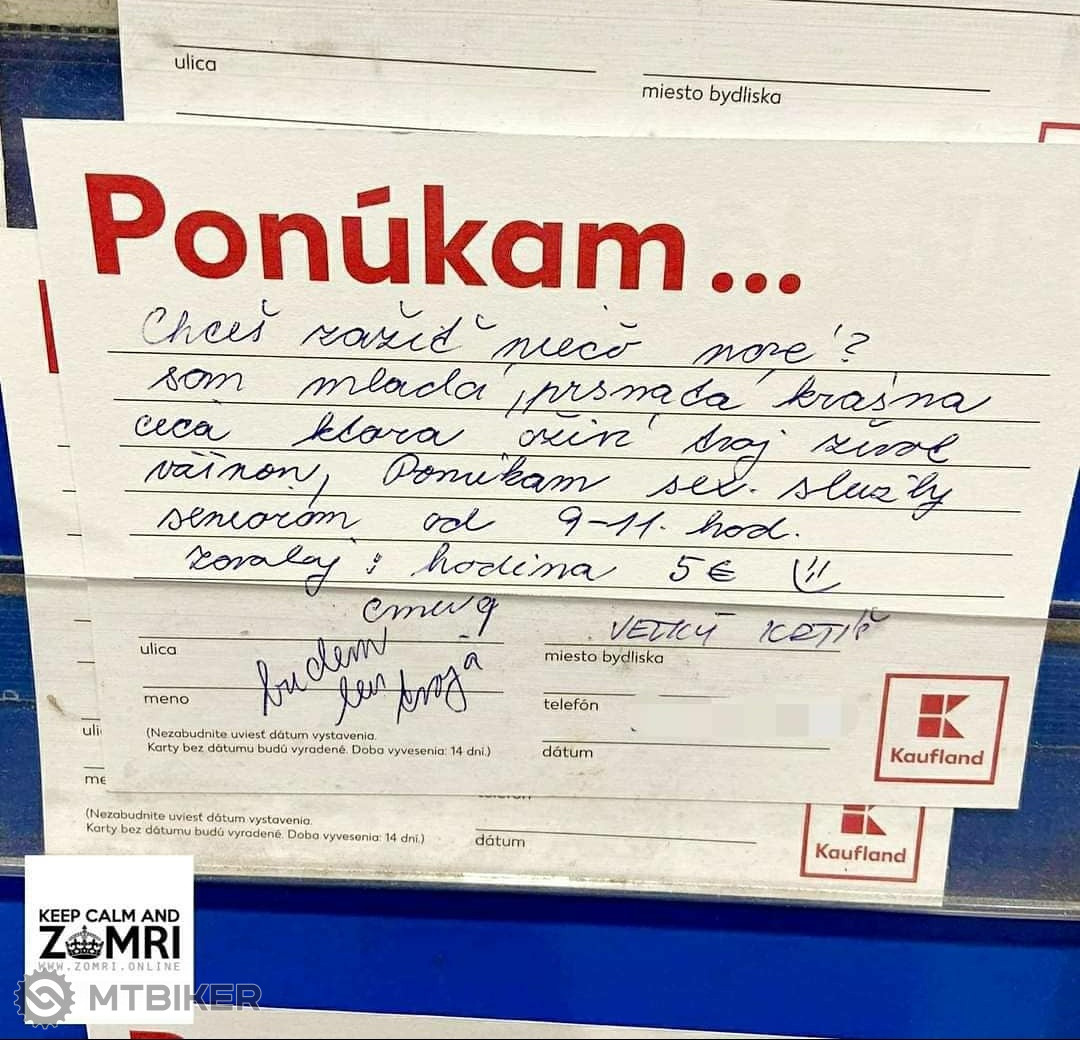 ulica
miesto bydliska
Ponúkam...
Chceš zažiť niečo nové?
som mladá, prsnatá krásna
ktorá oživí tvoj život
vášňou, Ponúkam sex. služby
seniorom od 9-11. hod.
zavolaj: hodina 5€
VEĽKÝ KRTÍŠ
ulica
miesto bydliska
budem
len tvoja
meno
telefón
(Nezabudnite uviesť dátum vystavenia.
Karty bez dátumu budú vyradené. Doba vyvesenia: 14 dní.)
dátum
Kaufland
uli
me
(Nezabudnite uviesť dátum vystavenia.
Karty bez dátumu budú vyradené. Doba vyvesenia: 14 dní.)
dátum
Kaufland
KEEP CALM AND
ZOMRI
WWW.ZOMRI.ONLINE
MTBIKER